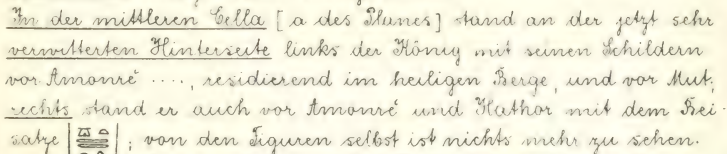 In der mittleren Cella [a des Planes] stand an der jetzt sehr
verwitterten Hinterseite links der König mit seinen Schildern
vor Amonrê ...., residierend im heiligen Berge, und vor Mut;
rechts stand er auch vor Amonrê und Hathor mit dem Bei-
satze | |; von den Figuren selbst ist nichts mehr zu sehen.